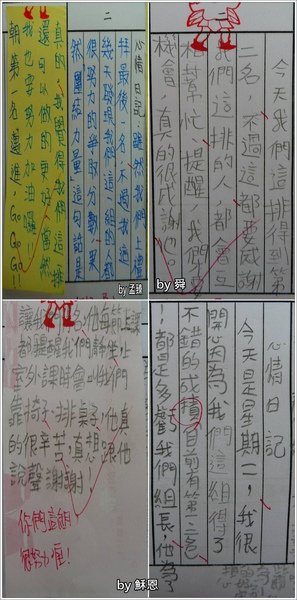 二
心情日記 雖然我們上禮
拜最後一名,不過我這
幾天發現我們這一組的人都
很努力的爭取分數,果
然團結力量大這句話是
真的,我覺得我們這排
還可以做的更好,當然
我也要努力加油囉!!
朝第一名邁進GoGoGo!
by 孟臻
今天我們這排得到第
二名,不過這都要感謝
我們這排的人都會互
相幫忙提醒,我們
機會,真的很感謝他。
by 舜
心情日記
今天是星期二,我很
開心因為我們這組得了
不錯的成積,目前有第二名
!都是多虧了我們組長,他為了
讓我們名,他每節上課
都提醒我們靜坐,上
室外課時會叫我們
靠椅子、排桌子,他真
的很辛苦,真想跟他
說聲謝謝!
你們這組
很努力喔!
by 穌恩